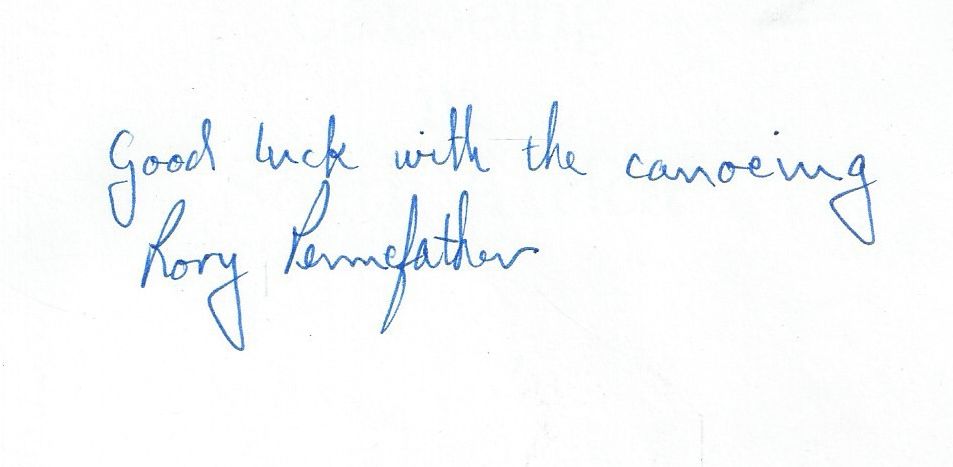 Good luck with the canoeing
Rory Pennefather